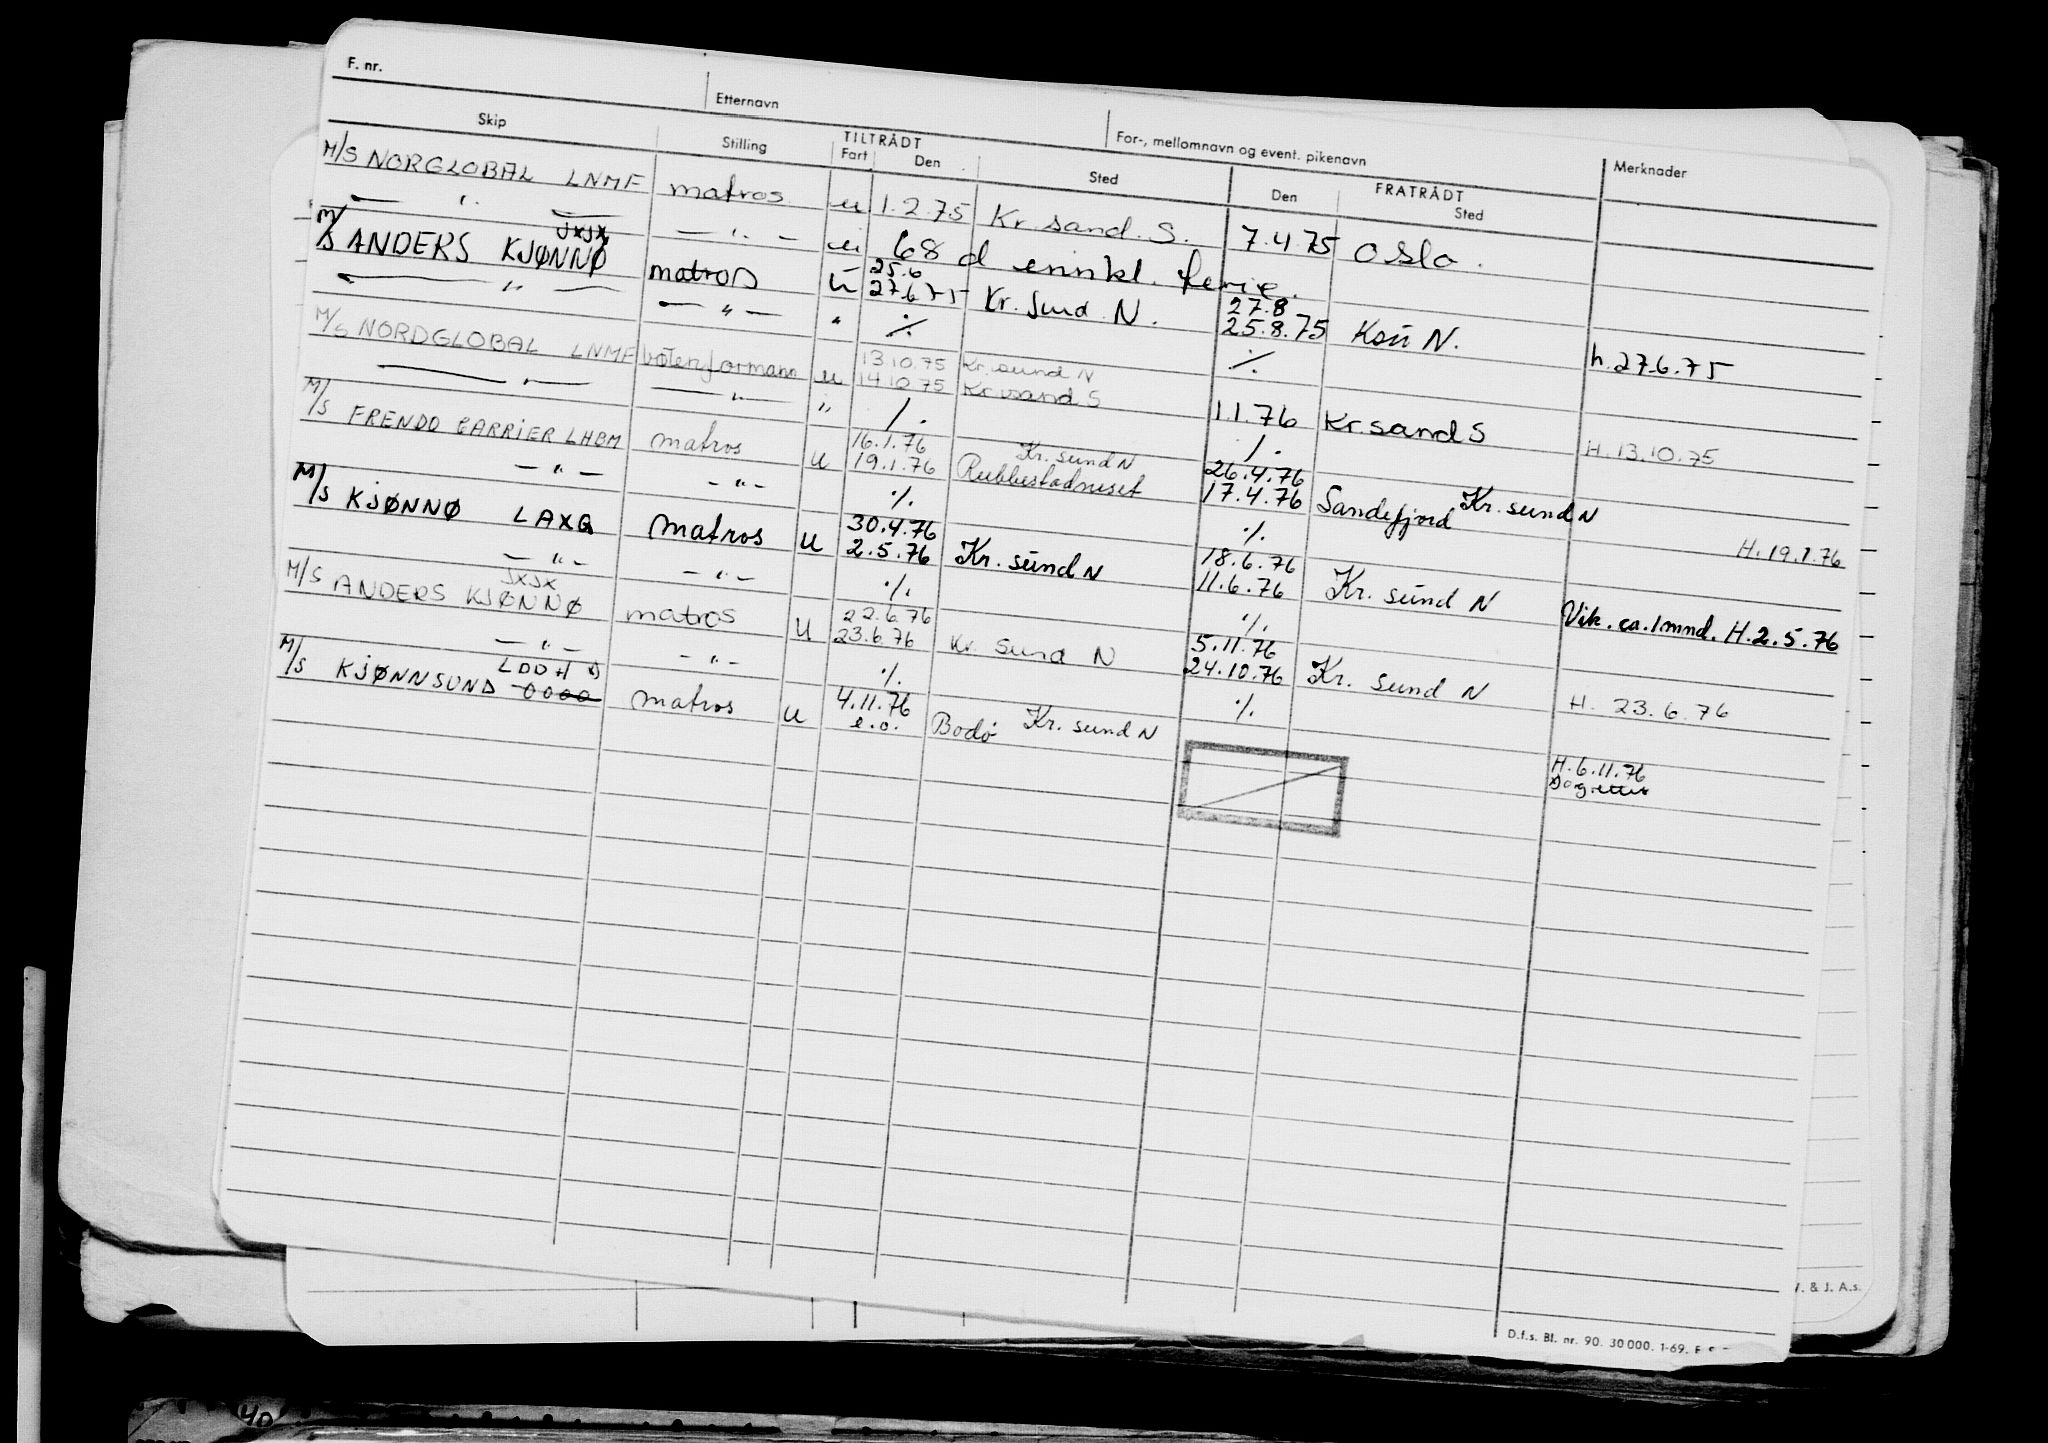 F. nr. Etternavn For-, mellomnavn og event. pikenavn
Skip Stilling TILTRÅDT Fart Den Sted FRATRÅDT Den Sted Merknader
M/S NORGLOBAL LNMF matros u 1.2.75 Kr. sand. S. 7.4.75 Oslo.
— " — — " — u 68 d innkl. ferie.
M/S ANDERS KJØNNØ JXJX matros u 25.6 27.6.75 Kr. Sund N. 27.8 25.8.75 Ksu N. h. 27.6.75
— " — — " — " ./. ./.
M/S NORDGLOBAL LNMF båtsformann u 13.10.75 14.10.75 Kr. sund N Kr. sand S 1.1.76 Kr. sand S H. 13.10.75
— " — — " — " /. /.
M/S FRENDO CARRIER LHBM matros u 16.1.76 19.1.76 Kr. sund N Rubbestadneset 26.4.76 17.4.76 Sandefjord Kr. sund N H. 19.1.76
— " — — " — ./. ./.
M/S KJØNNØ LAXQ matros u 30.4.76 2.5.76 Kr. sund N 18.6.76 11.6.76 Kr. sund N Vik. ca. 1 mnd. H. 2.5.76
— " — — " — ./. ./.
M/S ANDERS KJØNNØ JXJX matros u 22.6.76 23.6.76 Kr. Sund N 5.11.76 24.10.76 Kr. sund N H. 23.6.76
— " — — " — ./. ./.
M/S KJØNNSUND LDDH matros u 4.11.76 e.o. Bodø Kr. sund N H. 6.11.76
D.f.s. Bl. nr. 90. 30 000. 1-69.
& J. A.s.
40